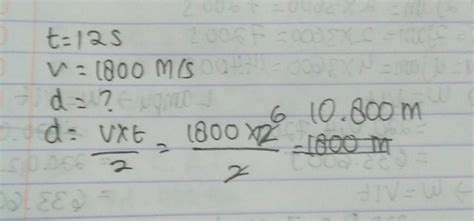 t=12s
v=1800 m/s
d=?
d= vxt/2 = 1800x12 6/2 = 1800 m 10.800m